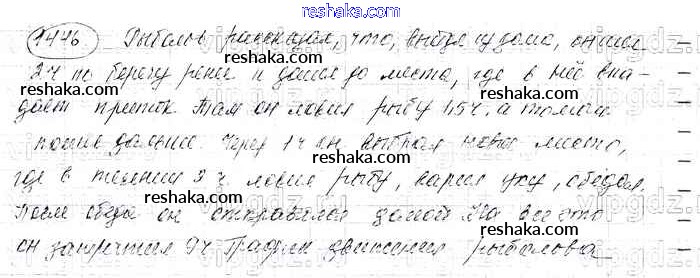 reshaka.ru
1446 Рыболов рассказал, что, выйдя из дома, он шел
2 ч по берегу реки и дошел до места, где в неё впа-
reshaka.ru
дает приток. Там он ловил рыбу 1,5 ч, а потом
пошел дальше. Через 1 ч он выбрал новое место,
reshaka.ru
где в течении 2 ч ловил рыбу, варил уху, обедал.
reshaka.ru
После обеда он отправился домой. На все это
он затратил 9 ч. График движения рыболова
reshaka.ru